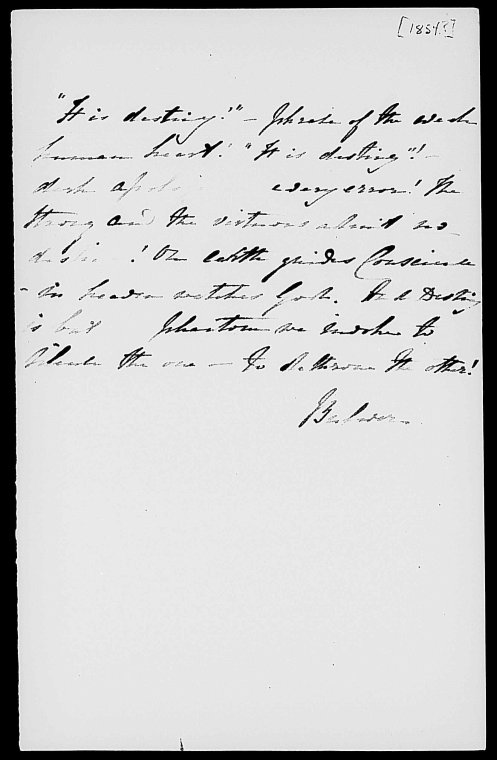 [1854?]
"It is destiny!" – phrase of the weak
human heart! "It is destiny"! –
dark apolo every error! The
strong and the virtuous admit no
! On earth guides Conscience
– in heaven watches God. And Destiny
is but phantom we invoke to
silence the one – to dethrone the other!
Bulwer.